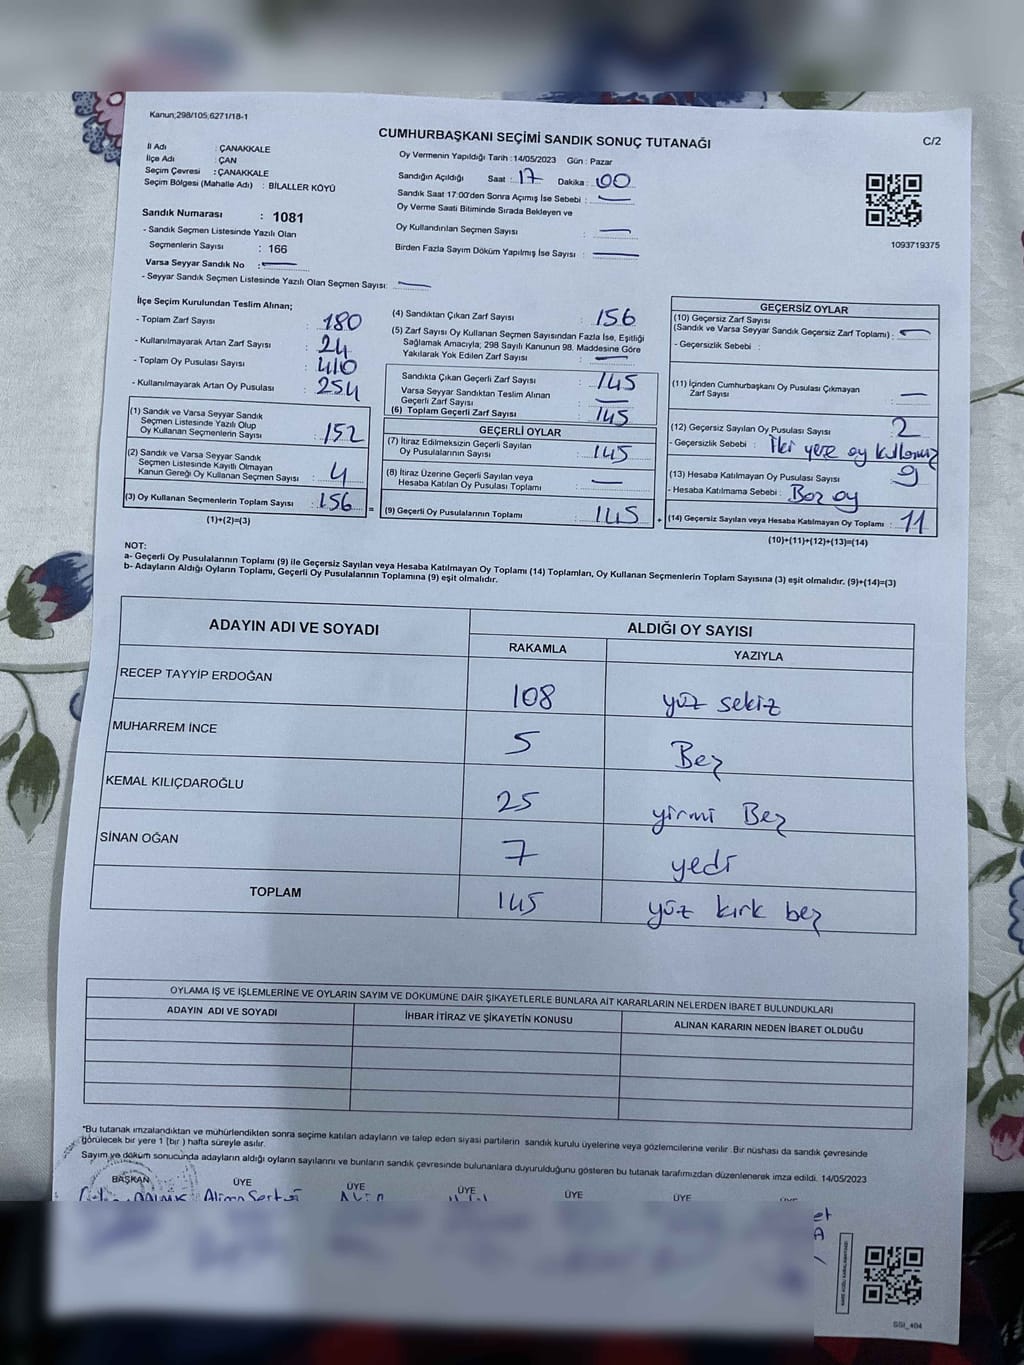 Kanun;298/105,6271/18-1
CUMHURBAŞKANI SEÇİMİ SANDIK SONUÇ TUTANAĞI
C/2
İl Adı : ÇANAKKALE
İlçe Adı : ÇAN
Seçim Çevresi : ÇANAKKALE
Seçim Bölgesi (Mahalle Adı) : BİLALLER KÖYÜ
Sandık Numarası : 1081
- Sandık Seçmen Listesinde Yazılı Olan
Seçmenlerin Sayısı : 166
Varsa Seyyar Sandık No :
- Seyyar Sandık Seçmen Listesinde Yazılı Olan Seçmen Sayısı:
Oy Vermenin Yapıldığı Tarih :14/05/2023 Gün : Pazar
Sandığın Açıldığı Saat : 17 Dakika : 00
Sandık Saat 17:00'den Sonra Açımış İse Sebebi :
Oy Verme Saati Bitiminde Sırada Bekleyen ve
Oy Kullandırılan Seçmen Sayısı :
Birden Fazla Sayım Döküm Yapılmış İse Sayısı :
1093719375
İlçe Seçim Kurulundan Teslim Alınan;
- Toplam Zarf Sayısı : 180
- Kullanılmayarak Artan Zarf Sayısı : 24
- Toplam Oy Pusulası Sayısı : 410
- Kullanılmayarak Artan Oy Pusulası : 254
(1) Sandık ve Varsa Seyyar Sandık
Seçmen Listesinde Yazılı Olup
Oy Kullanan Seçmenlerin Sayısı : 152
(2) Sandık ve Varsa Seyyar Sandık
Seçmen Listesinde Kayıtlı Olmayan
Kanun Gereği Oy Kullanan Seçmen Sayısı : 4
(3) Oy Kullanan Seçmenlerin Toplam Sayısı : 156 =
(1)+(2)=(3)
(4) Sandıktan Çıkan Zarf Sayısı : 156
(5) Zarf Sayısı Oy Kullanan Seçmen Sayısından Fazla İse, Eşitliği
Sağlamak Amacıyla; 298 Sayılı Kanunun 98. Maddesine Göre
Yakılarak Yok Edilen Zarf Sayısı :
Sandıkta Çıkan Geçerli Zarf Sayısı : 145
Varsa Seyyar Sandıktan Teslim Alınan
Geçerli Zarf Sayısı
(6) Toplam Geçerli Zarf Sayısı : 145
GEÇERLİ OYLAR
(7) İtiraz Edilmeksizin Geçerli Sayılan
Oy Pusulalarının Sayısı : 145
(8) İtiraz Üzerine Geçerli Sayılan veya
Hesaba Katılan Oy Pusulası Toplamı :
(9) Geçerli Oy Pusulalarının Toplamı : 145 +
GEÇERSİZ OYLAR
(10) Geçersiz Zarf Sayısı
(Sandık ve Varsa Seyyar Sandık Geçersiz Zarf Toplamı) :
- Geçersizlik Sebebi :
(11) İçinden Cumhurbaşkanı Oy Pusulası Çıkmayan
Zarf Sayısı :
(12) Geçersiz Sayılan Oy Pusulası Sayısı : 2
- Geçersizlik Sebebi : İki yere oy
(13) Hesaba Katılmayan Oy Pusulası Sayısı : 9
- Hesaba Katılmama Sebebi : Boz oy
(14) Geçersiz Sayılan veya Hesaba Katılmayan Oy Toplamı : 11
(10)+(11)+(12)+(13)=(14)
NOT:
a- Geçerli Oy Pusulalarının Toplamı (9) ile Geçersiz Sayılan veya Hesaba Katılmayan Oy Toplamı (14) Toplamları, Oy Kullanan Seçmenlerin Toplam Sayısına (3) eşit olmalıdır. (9)+(14)=(3)
b- Adayların Aldığı Oyların Toplamı, Geçerli Oy Pusulalarının Toplamına (9) eşit olmalıdır.
ADAYIN ADI VE SOYADI
ALDIĞI OY SAYISI
RAKAMLA YAZIYLA
RECEP TAYYİP ERDOĞAN 108 yüz sekiz
MUHARREM İNCE 5 Beş
KEMAL KILIÇDAROĞLU 25 yirmi Beş
SİNAN OĞAN 7 yedi
TOPLAM 145 yüz kırk beş
OYLAMA İŞ VE İŞLEMLERİNE VE OYLARIN SAYIM VE DÖKÜMÜNE DAİR ŞİKAYETLERLE BUNLARA AİT KARARLARIN NELERDEN İBARET BULUNDUKLARI
ADAYIN ADI VE SOYADI İHBAR İTİRAZ VE ŞİKAYETİN KONUSU ALINAN KARARIN NEDEN İBARET OLDUĞU
*Bu tutanak imzalandıktan ve mühürlendikten sonra seçime katılan adayların ve talep eden siyasi partilerin sandık kurulu üyelerine veya gözlemcilerine verilir .Bir nüshası da sandık çevresinde
görülecek bir yere 1 (bir ) hafta süreyle asılır.
Sayım ve döküm sonucunda adayların aldığı oyların sayılarını ve bunların sandık çevresinde bulunanlara duyurulduğunu gösteren bu tutanak tarafımızdan düzenlenerek imza edildi. 14/05/2023
BAŞKAN ÜYE ÜYE ÜYE ÜYE ÜYE ÜYE
SSI_404